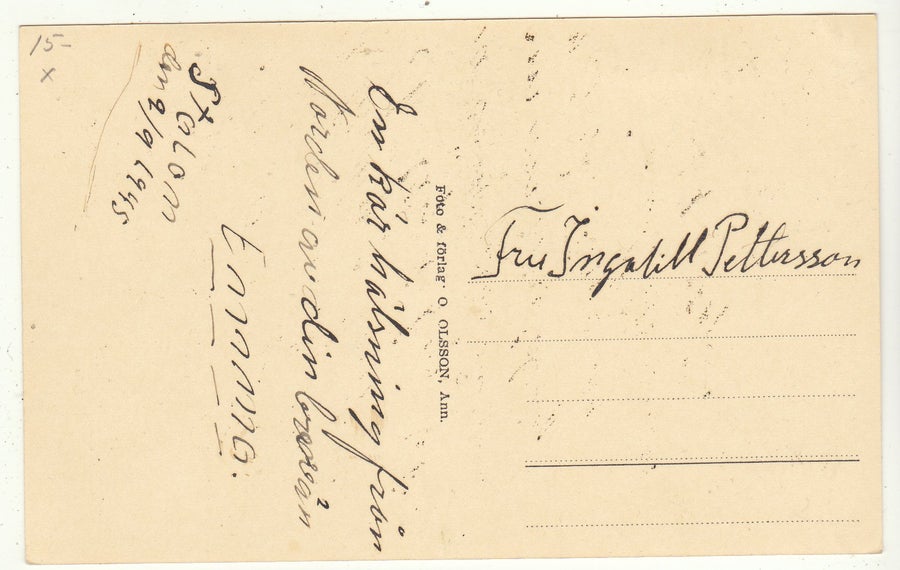 15-
x
St olom
den 2/9 1945
En kär hälsning från
Norden av din
Emma.
Foto & förlag O OLSSON, Ann.
Fru Ingatill Pettersson